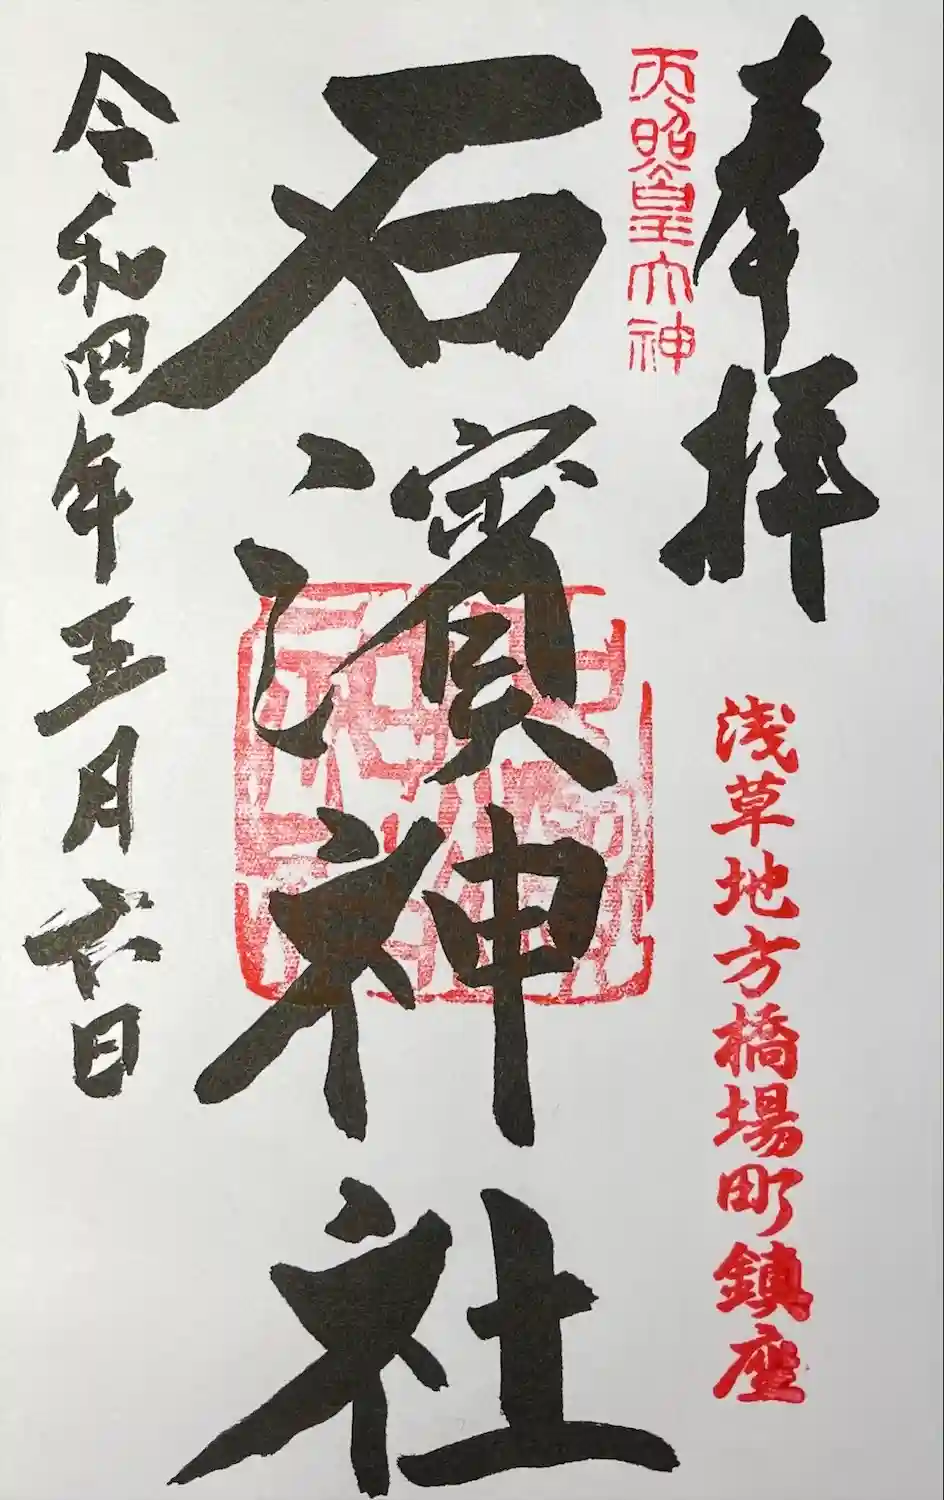 奉拝
浅草地方橋場町鎮座
天照皇大神
石濱神社
令和四年五月六日